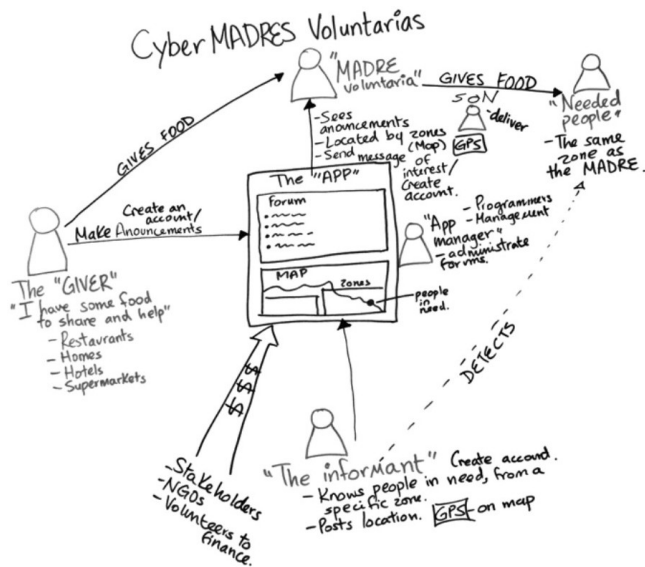 CyberMADRES Voluntarias
"MADRE
voluntaria"
GIVES FOOD
GIVES FOOD
SON
"deliver
"Needed
people"
- The same
zone as
the MADRE.
- Sees
anouncements
- Located by zones
(Map)
GPS
- Send message
of
interest/
Create
account.
The "APP"
Forum
MAP
zones
people
in
need.
"App
manager"
- Programmers
- Management
- administrate
forums.
Create an
account/
Make Anouncements
The "GIVER"
"I have some food
to share and help"
- Restaurants
- Homes
- Hotels
- Supermarkets
DETECTS
$ $ $
- Stakeholders
- NGOs
- Volunteers to
finance.
"The informant"
Create account.
- Knows people in need, from a
specific zone.
- Posts location. GPS - on map